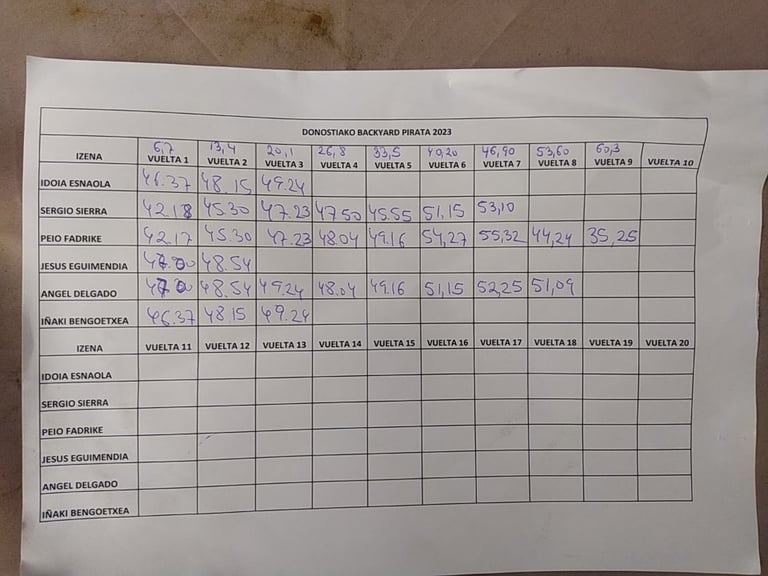 DONOSTIAKO BACKYARD PIRATA 2023
6,7 13,4 20,1 26,8 33,5 40,20 46,90 53,60 60,3
IZENA VUELTA 1 VUELTA 2 VUELTA 3 VUELTA 4 VUELTA 5 VUELTA 6 VUELTA 7 VUELTA 8 VUELTA 9 VUELTA 10
IDOIA ESNAOLA 46.37 48.15 49.24
SERGIO SIERRA 42.18 45.30 47.23 47.50 45.55 51,15 53,10
PEIO FADRIKE 42.17 45.30 47.23 48.04 49.16 54,27 55,32 44,24 35,25
JESUS EGUIMENDIA 48.54
ANGEL DELGADO 48.54 49.24 48.04 49.16 51,15 52,25 51,09
IÑAKI BENGOETXEA 46.37 48.15 49.24
IZENA VUELTA 11 VUELTA 12 VUELTA 13 VUELTA 14 VUELTA 15 VUELTA 16 VUELTA 17 VUELTA 18 VUELTA 19 VUELTA 20
IDOIA ESNAOLA
SERGIO SIERRA
PEIO FADRIKE
JESUS EGUIMENDIA
ANGEL DELGADO
IÑAKI BENGOETXEA